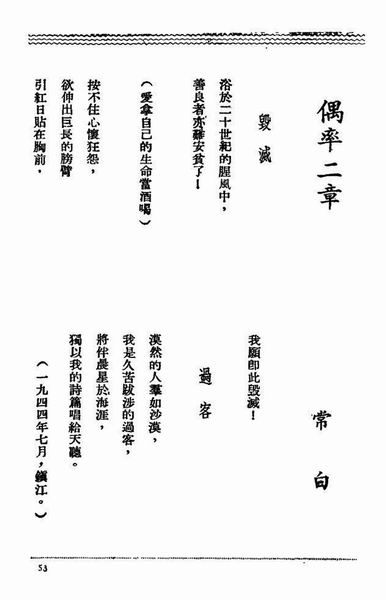 偶率二章
常白
毀滅
浴於二十世紀的腥風中，
善良者亦難安貧了！
（愛拿自己的生命當酒喝）
按不住心懷狂怨，
欲伸出巨長的膀臂
引紅日貼在胸前，
我願卽此毀滅！
過客
漠然的人羣如沙漠，
我是久苦跋涉的過客，
將伴晨星於海涯，
獨以我的詩篇唱給天聽。
（一九四四年七月，鎭江。）
53